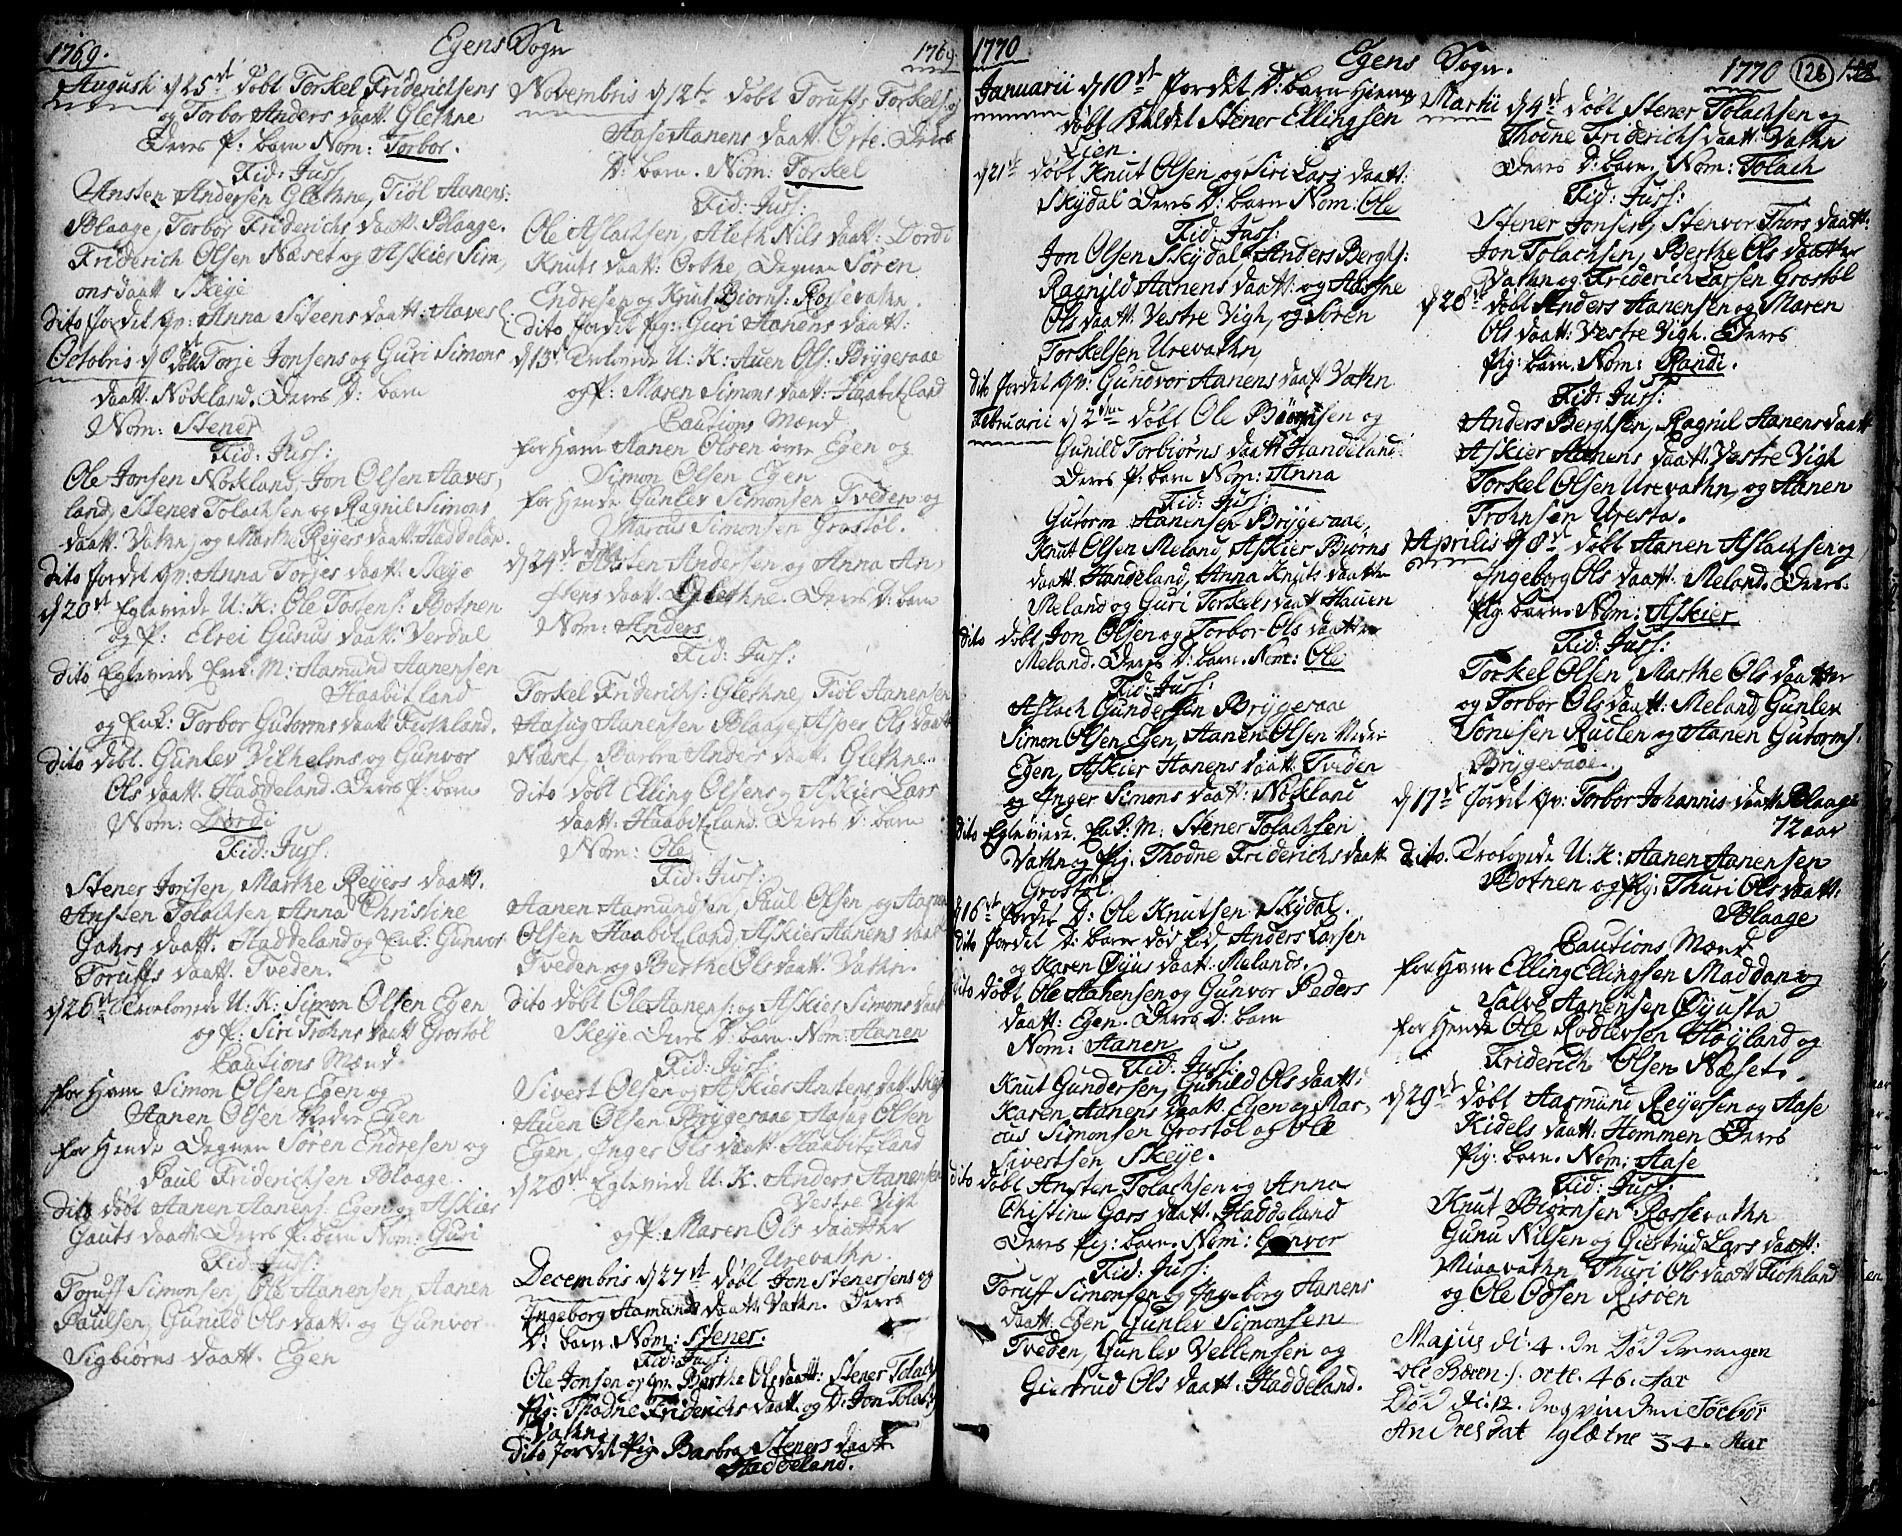 1769. Egens Sogn 1769
Augusti d 25de døbt Torkel Friderichsens
og Torbor Anders daatt. Glethne
Deres P: barn Nom: Torbor.
Fid: Juss:
Ansten Andersen Glethne, Tiøl Aanens:
Blaage, Torbor Friderichs daatt. Blaage.
Friderich Olsen Næset og Askier Sim,
ons daatt Skeye
dito jordet Qv: Anna Steens daatt: Haavesl:
Octobris d 8de døbt Torje Jonsens og Guri Simons
daatt. Nokland. Deres D: barn
Nom: Stener
Fid: Juss:
Ole Jonsen Nokland, Jon Olsen Aaves,
land, Stener Tolachsen og Ragnil Simons
daatt. Vathn, og Marthe Reyers daatt. Haddelan.
dito jordet Qv: Anna Torjes daatt: Skeye
d 20de Egteviede U: K: Ole Tostens: Botnen
og P: Elsei Gunus daatt: Verdal
dito Egteviede Enk: M: Aamund Aanensen
Haabitzland
og Enk: Torbor Gutorms daatt: Fiskland.
dito døbt. Gunlev Vilhelms og Gunvor
Ols daatt. Haddeland. Deres P: barn
Nom: Dordi
Fid: Juss:
Stener Jonsen, Marthe Reyers daatt.
Ansten Tolachsen Anna Christine
Gahrs daatt. Haddeland og Enk: Gunvor
Toruffs daatt. Tveden.
d 26de Trolovede U: K: Simon Olsen Egen
og P: Siri Trohns daatt Grostøl
Cautions Mænd
for Ham Simon Olsen Egen og
Aanen Olsen Nedre Egen
for Hende Degnen Søren Endresen og
Paul Friderichsen Blaage.
dito døbt Aanen Aanens: Egen og Askier
Gauts daatt Deres P: barn Nom: Guri
Fid: Juss:
Toruff Simonsen, Ole Aanensen, Aanen
Paulsen, Gunild Ols daatt. og Gunvor
Sigbiørns daatt. Egen
Novembris d 12te døbt Toruffs Torkels: og
Aase Aanens daatt. Orte. Deres
D: barn. Nom: Torkel
Fid: Juss:
Ole Aslachsen, Aleth Nils daatt: Dordi
Knuts daatt: Orthe, Degnen Søren
Endresen og Knut Biorns: Rossevathn.
dito jordet Pig: Guri Aanens daatt:
d 13de Trolovede U: K: Auen Ols: Brygesaae
og P: Maren Simons daatt: Haabitzland
Cautions Mænd
for Ham Aanen Olsen øvre Egen og
Simon Olsen Egen
for Hende Gunlev Simonsen Tveden og
Marcus Simonsen Grostøl.
d 24de døbt Ansten Andersen og Anna An,
stens daatt. Glethne. Deres D: barn
Nom: Anders
Fid: Juss:
Torkel Friderichs: Glethne, Tiøl Aanensen
Aasug Aanensen Blaage, Asper Ols daatt
Næset, Barbra Anders daatt. Glethne.
dito døbt Elling Olsens og Askier Lars
daatt: Haabitzland. Deres D: barn
Nom: Ole
Fid: Juss:
Aanen Aamundsen, Paul Olsen, og Aagne
Olsen Haabitzland, Askier Aanens daatt
Tveden og Berthe Ols daatt. Vathn.
dito døbt Ole Aanens: og Askier Simons daatt
Skeye Deres D: barn. Nom: Aanen
Fid: Juss:
Sivert Olsen og Askier Anstens datt. Skeye
Auen Olsen Brygesaae, Aasug Olsen
Egen, Inger Ols daatt. Haabitzland
d 28de Egteviede U: K. Anders Aanensen
Vestre Vigh
og P. Maren Ols daatter
Urevathn.
Decembris d 27de døbt Jon Stenersens og
Ingeborg Aamunds daatt. Vathn. Deres
D: barn. Nom: Stener.
Fid: Juss:
Ole Jonsen og Qv. Berthe Ols daatt: Stener Tolach
Pig: Thodne Friderichs daatt. og D: Jon Tolachs
Vathn.
dito jordet Pig Barbra Steners daatt
Haddeland.
1770 Egens Sogn. 1770 126
Januarii d 10de jordet D: barn Hiemme
døbt kaldet Stener Ellingsen
Lien.
d 21de døbt Knut Olsen og Siri Lars daatt:
Skydal Deres D: barn Nom: Ole
Fid: Juss:
Jon Olsen Skydal Anders Berghs:
Ragnild Aanens daatt: og Aassne
Ols daatt. Vestre Vigh, og Søren
Torkelsen Urevathn,
dito jordet Qv: Gundvor Aanens daatt Vathn
Februarii d 2den døbt Ole Biørnsen og
Gunild Torbiørns daatt Handeland
Deres P: barn Nom: Anna
Fid: Juss:
Gutorm Aanensen Brygesaae,
Knut Olsen Meland, Askier Biørns
daatt. Handeland, Anna Knuts daatter
Meland og Guri Torkels daatt Hauen
dito døbt Jon Olsen og Torbor Ols daatter
Meland. Deres D: barn. Nom: Ole
Fid: Juss:
Aslach Gundersen Brygesaae
Simon Olsen Egen, Aanen Olsen Nedre
Egen, Askier Aanens daatt. Tveden
og Inger Simons daatt: Nokland
dito Egteviede. Enk: M: Stener Tolachsen
Vathn og Pig. Thodne Friderichs daatt
Grostøl.
d 16de jordet D: Ole Knutsen Skydal.
dito jordet D: barn død fød, Anders Larsen
og Karen Oyus daatt: Melands.
dito døbt Ole Aanensen og Gunvor Peders
daatt: Egen. Deres D: barn
Nom: Aanen
Fid: Juss:
Knut Gundersen, Gunild Ols daatt:
Karen Aanens daatt. Egen og Mar,
cus Simonsen Grostøl og Ole
Sivertsen Skeye.
dito døbt Ansten Tolachsen og Anna
Christine Gars daatt. Haddeland
Deres Pig: barn. Nom: Gunvor
Fid: Juss:
Toruff Simonsen og Ingeborg Aanens
daatt: Egen Gunlev Simonsen
Tveden, Gunlev Vellemsen og
Giertrud Ols daatt. Haddeland.
Martii d 4de døbt Stener Tolachsen og
Thodne Friderichs daatt. Vathn
Deres D: barn, Nom: Tolach
Fid: Juss:
Stener Jonsen, Stenvor Thors daatt.
Jon Tolachsen, Berthe Ols daatter
Vathn og Friderich Larsen Grostøl
d 28de døbt Anders Aanensen og Maren
Ols daatt. Vestre Vigh. Deres
Pig: barn. Nom: Randi.
Fid: Juss:
Anders Berghsen, Ragnil Aanens daatt
Askier Aanens daatt. Vestre Vigh
Torkel Olsen Urevathn, og Aanen
Trohnsen Uresta.
Aprilis d 8de døbt Aanen Aslachsen og
Ingeborg Ols daatt. Meland. Deres
Pig barn. Nom: Askier
Fid: Juss:
Torkel Olsen, Marthe Ols daatter
og Torbor Ols daatt: Meland Gunlev
Tonesen Rudlen og Aanen Gutorms:
Brygesaae.
d 17de jordet Qv: Torbor Johannis daatt. Blaage
72 aar
dito. Trolovede U: K: Aanen Aanensen
Botnen og Pig: Thuri Ols daatt:
Blaage
Cautions Mænd
for Ham Elling Ellingsen Maddan og
Salve Aanensen Oyusta
for Hende Ole Rodlevsen Høyland og
Friderich Olsen Næset.
d 29de døbt Aasmund Reyersen og Aase
Kidels daatt: Hommen Deres
Pig: barn. Nom: Aase
Fid: Juss:
Knut Biørnsen Rossevathn
Gunu Nilsen og Giertrud Lars daatt:
Miaavathn, Thuri Ols daatt Fiskland
og Ole Odsen Risøen
Majus di: 4. in Død
ole Børen: orte. 46. Aar
Død di: 12. Torbor
Andresdat glætne 34. Aar